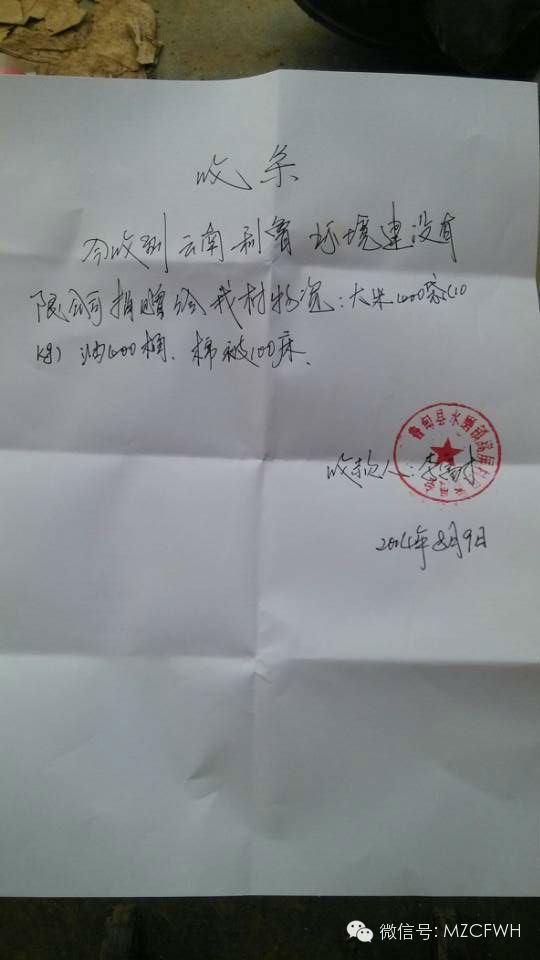 收条
今收到云南利鲁环境建设有
限公司捐赠给我村物资:大米1000袋(10
KG) 油1000桶、棉被100床.
收款人:李
鲁甸县水磨镇
2014年8月9日
微信号: MZCFWH